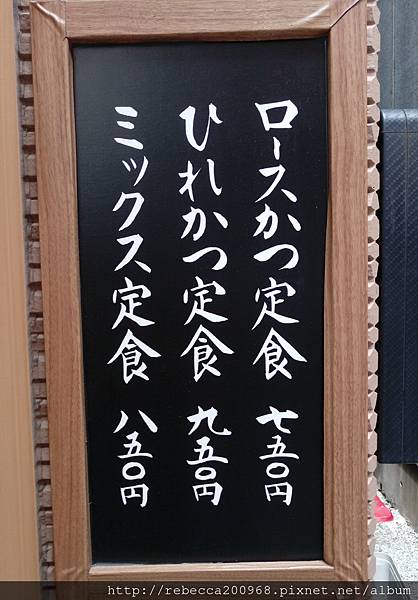 ロースかつ定食 七五〇円
ひれかつ定食 九五〇円
ミックス定食 八五〇円
http://rebecca200968.pixnet.net/album